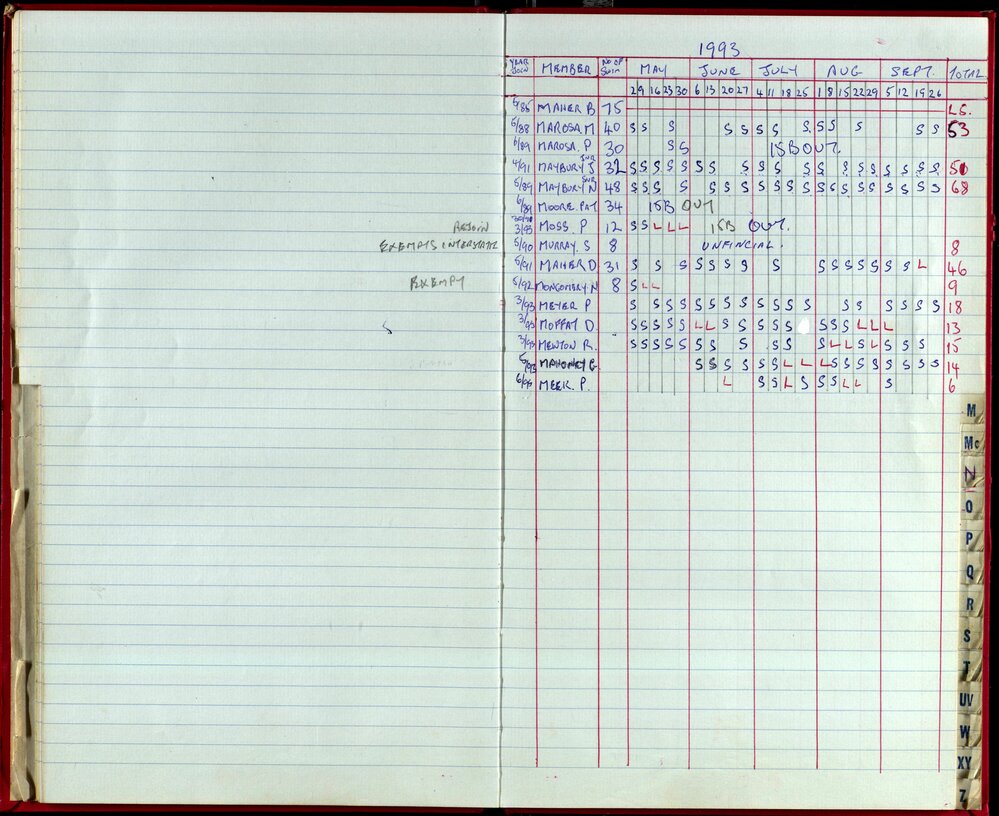 1993
YEAR JOIN MEMBER NO OF SWIM MAY JUNE JULY AUG SEPT. TOTAL
2 9 16 23 30 6 13 20 27 4 11 18 25 1 8 15 22 29 5 12 19 26
6/86 MAHER B 75 L.S.
5/88 MAROSA M 40 S S S S S S S S S S S S S 53
6/89 MAROSA. P 30 S S ISB OUT.
4/91 MAYBURY J SNR 32 S S S S S S S S S S S S S S S S S S S 50
5/89 MAYBURY N SNR 48 S S S S S S S S S S S S S S S S S S S S 68
6/89 MOORE. PAT 34 ISB OUT
REJOIN 3/93 MOSS. P 12 S S L L L ISB OUT.
EXEMPTS INTERSTATE 5/90 MURRAY. S 8 UNFINCIAL. 8
5/91 MAHER D. 31 S S S S S S S S S S S S S S S L 46
EXEMPT 5/92 MONTGOMERY N 8 S L L 9
3/93 MEYER P S S S S S S S S S S S S S S S S S S 18
3/93 MOFFAT D. S S S S S L L S S S S S S S S L L L 13
3/93 MEWTON R. S S S S S S S S S S S L L S L S S S 15
5/93 MAHONEY G S S S S S S L L L S S S S S S S S 14
MEEK. P. L S S L S S S L L S 6
M
Mc
N
O
P
Q
R
S
T
UV
W
XY
Z